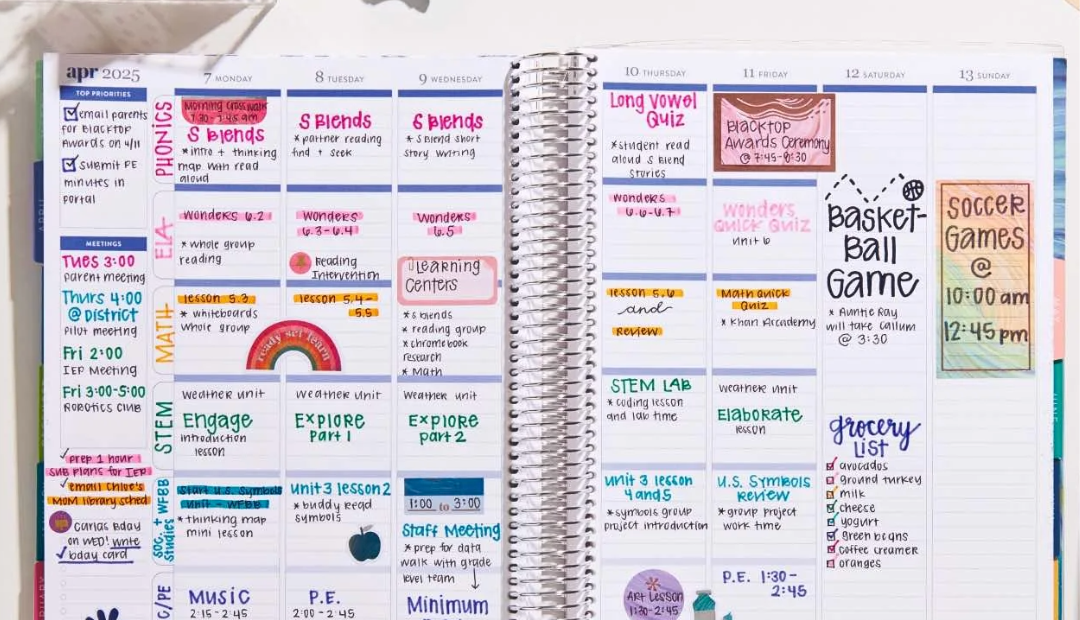 apr 2025
TOP PRIORITIES
email parents
for Blacktop
Awards on 4/11
Submit PE
minutes in
portal
MEETINGS
Tues 3:00
parent meeting
Thurs 4:00
@ District
Pilot meeting
Fri 2:00
IEP Meeting
Fri 3:00-5:00
Robotics Club
prep 1 hour
sub plans for IEP
email Chloe's
mom library sched
Carlas Bday
on WED! write
bday card
PHONICS
ELA
MATH
STEM
SOC. Studies + WFBB
C/PE
7 MONDAY
Morning Crosswalk
7:30-7:45 am
S Blends
*intro + thinking
map with read
aloud
Wonders 6.2
*whole group
reading
lesson 5.3
*whiteboards
whole group
ready set learn
weather unit
Engage
introduction
lesson
Start U.S. Symbols
unit - WFBB
*thinking map
mini lesson
MUSIC
2:15-2:45
8 TUESDAY
S Blends
*partner reading
find + seek
Wonders
6.3-6.4
Reading
Intervention
lesson 5.4-
5.5
weather unit
Explore
part 1
Unit 3 lesson 2
*buddy read
symbols
P.E.
2:00-2:45
9 WEDNESDAY
S Blends
*S Blend short
story writing
Wonders
6.5
Learning
Centers
*S blends
*reading group
*chromebook
research
*Math
weather unit
Explore
part 2
1:00 to 3:00
Staff Meeting
*prep for data
walk with grade
level team
Minimum
10 THURSDAY
Long Vowel
Quiz
*student read
aloud S Blend
Stories
Wonders
6.6-6.7
lesson 5.6
and
Review
STEM LAB
*coding lesson
and lab time
Unit 3 lesson
4 and 5
*symbols group
project introduction
Art Lesson
1:30-2:45
11 FRIDAY
Blacktop
Awards Ceremony
@ 7:45-8:30
Wonders
Quick Quiz
unit 6
Math Quick
Quiz
*Khan Academy
weather unit
Elaborate
lesson
U.S. Symbols
Review
*group project
work time
P.E. 1:30-
2:45
12 SATURDAY
Basket-
Ball
Game
*Auntie Ray
will take Callum
@ 3:30
grocery
LIST
avocados
ground turkey
milk
cheese
yogurt
green beans
coffee creamer
oranges
13 SUNDAY
Soccer
Games
@
10:00 am
12:45 pm
APRIL